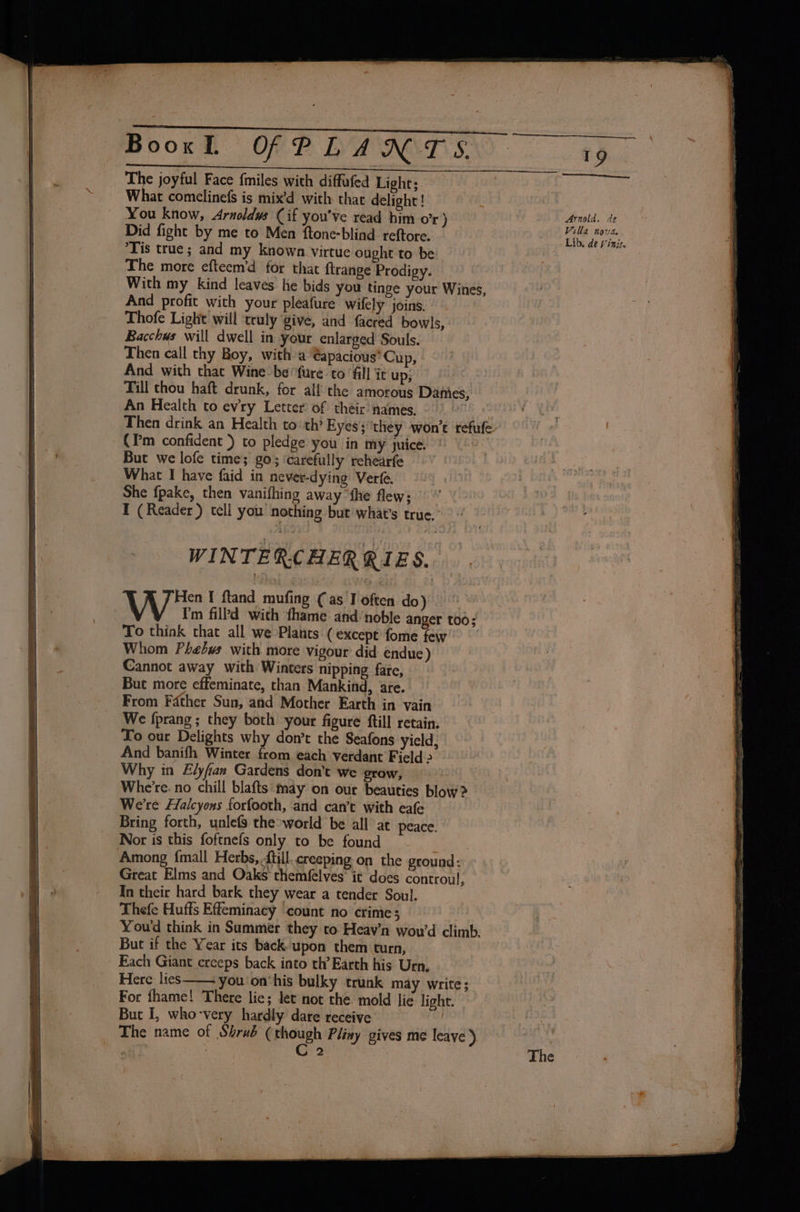 Book I. Of PLANTS. 19
The joyful Face ſmiles with diffuſed Light;
What comelineſs is mix'd with that delight!
You know, Arnoldus (if you've read him o'r)
Did fight by me to Men ſtone-blind reſtore.
'Tis true; and my known virtue ought to be
The more eſteem'd for that ſtrange Prodigy.
With my kind leaves he bids you tinge your Wines,
And profit with your pleaſure wiſely joins.
Thoſe Light will truly give, and ſacred bowls,
Bacchus will dwell in your enlarged Souls.
Then call thy Boy, with a Capacious Cup,
And with that Wine be ſure to fill it up;
Till thou haſt drunk, for all the amorous Dames,
An Health to ev'ry Letter of their names.
Then drink an Health to th' Eyes; they won't refuſe
(I'm confident) to pledge you in my juice.
But we loſe time; go; carefully rehearſe
What I have ſaid in never-dying Verſe.
She ſpake, then vaniſhing away ſhe flew;
I (Reader) tell you nothing but what's true.
Arnold. de
Villa nova.
Lib. de Vinis.
WINTERCHERRIES.
WHen I ſtand muſing (as I often do)
I'm fill'd with ſhame and noble anger too;
To think that all we Plants (except ſome few
Whom Phebus with more vigour did endue)
Cannot away with Winters nipping fare,
But more effeminate, than Mankind, are.
From Father Sun, and Mother Earth in vain
We ſprang; they both your figure ſtill retain.
To our Delights why don't the Seaſons yield,
And baniſh Winter from each verdant Field?
Why in Elyſian Gardens don't we grow,
Whe're no chill blaſts may on our beauties blow?
We're Halcyons forſooth, and can't with eaſe
Bring forth, unleſs the world be all at peace.
Nor is this ſoftneſs only to be found
Among ſmall Herbs, ſtill creeping on the ground:
Great Elms and Oaks themſelves it does controul,
In their hard bark they wear a tender Soul.
Theſe Huffs Effeminacy count no crime;
You'd think in Summer they to Heav'n wou'd climb.
But if the Year its back upon them turn,
Each Giant creeps back into th' Earth his Urn.
Here lies—— you on his bulky trunk may write;
For ſhame! There lie; let not the mold lie light.
But I, who very hardly dare receive
The name of Shrub (though Pliny gives me leave)
C 2 The